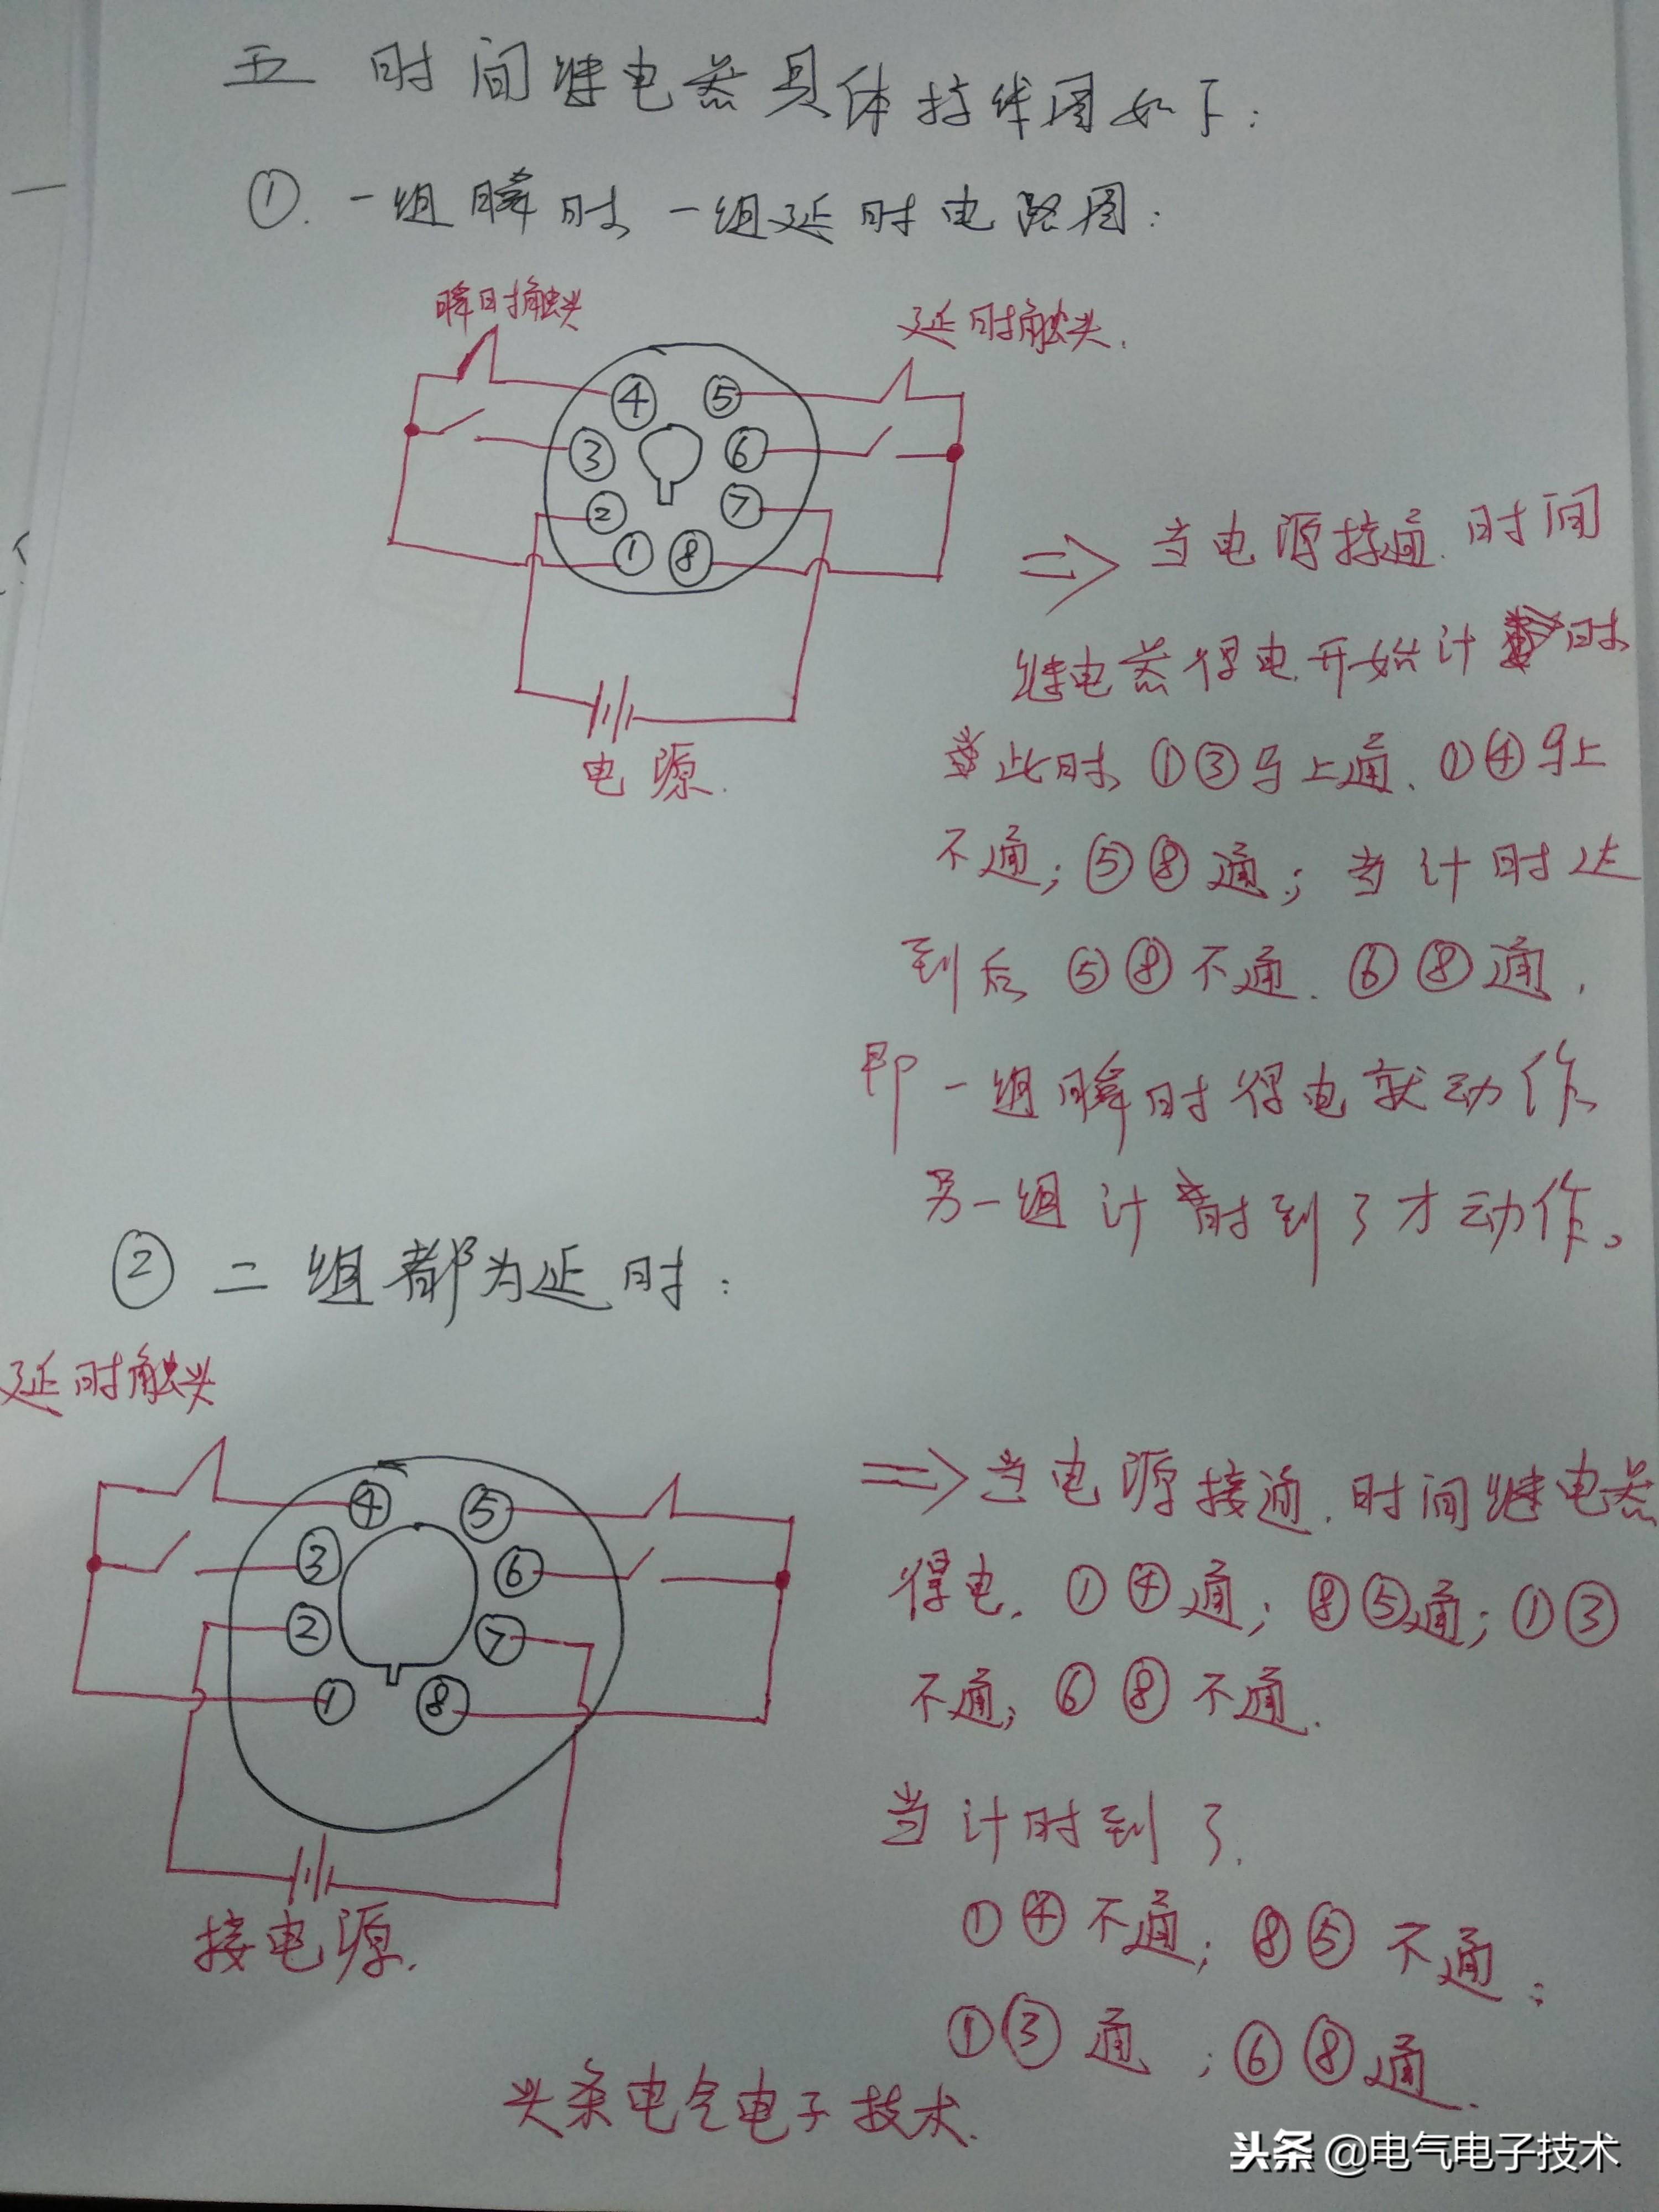 五 时间继电器具体接线图如下：
①. 一组瞬时 一组延时电路图：
瞬时触头
延时触头.
④ ⑤
③ ⑥
② ⑦
① ⑧
电源.
⇒ 当电源接通.时间
继电器得电.开始计时
此时 ①③马上通、①④马上
不通；⑤⑧通；当计时达
到后 ⑤⑧不通. ⑥⑧通，
即一组瞬时得电就动作
另一组计时到了才动作。
② 二组都为延时：
延时触头
④ ⑤
③ ⑥
② ⑦
① ⑧
接电源.
⇒当电源接通.时间继电器
得电. ①④通；⑧⑤通；①③
不通；⑥⑧不通.
当计时到了.
①④不通；⑧⑤不通；
①③通；⑥⑧通.
头条电气电子技术.
头条@电气电子技术